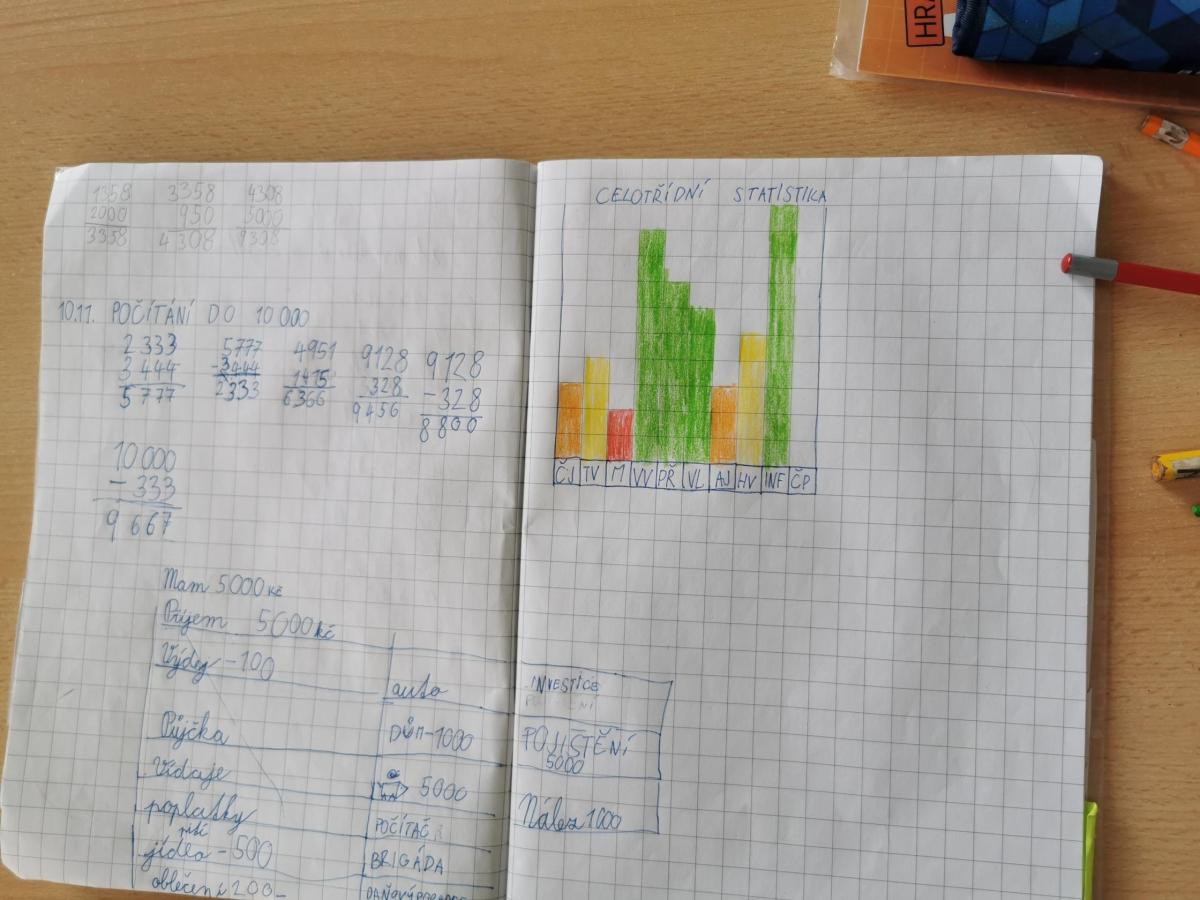 HRA
1358 3358 4308
2000 950 5000
3358 4308 9308
10.11. POČÍTÁNÍ DO 10 000
2 333 5777 4951 9128 9128
3 444 -3444 1415 328 -328
5 777 2333 6366 9456 8800
10 000
- 333
9 667
Mam 5000 kč
Příjem 5000 kč
Výdej -100
auto
Půjčka
DŮM-1000
Vídaje
5000
poplatky
POČÍTAČ
pití
jídlo -500
BRIGÁDA
oblečení 200-
CELOTŘÍDNÍ STATISTIKA
ČJ TV M VV PŘ VL AJ HV INF ČP
INVESTICE
POJIŠTĚNÍ
5000
Nález 1000